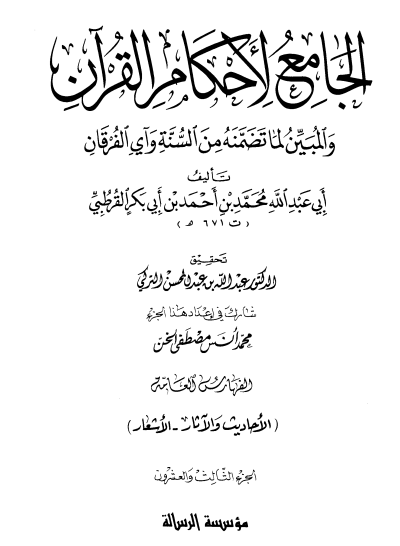 الجَامِعُ لِأَحْكَامِ القُرْآنِ
وَالمُبَيِّنُ لِمَا تَضَمَّنَهُ مِنَ السُّنَّةِ وَآيِ الفُرْقَانِ
تَأليفُ
أَبِي عَبْدِ اللهِ مُحَمَّدِ بْنِ أَحْمَدَ بْنِ أَبِي بَكْرٍ القُرْطُبِيِّ
(ت ٦٧١ هـ)
تحقيق
الدكتور عبد الله بن عبد المحسن التركي
شارك في إعداد هذا الجزء
محمد أنس مصطفى الخن
الفهارس العامة
(الأحاديث والآثار - الأشعار)
الجزء الثالث والعشرون
مؤسسة الرسالة